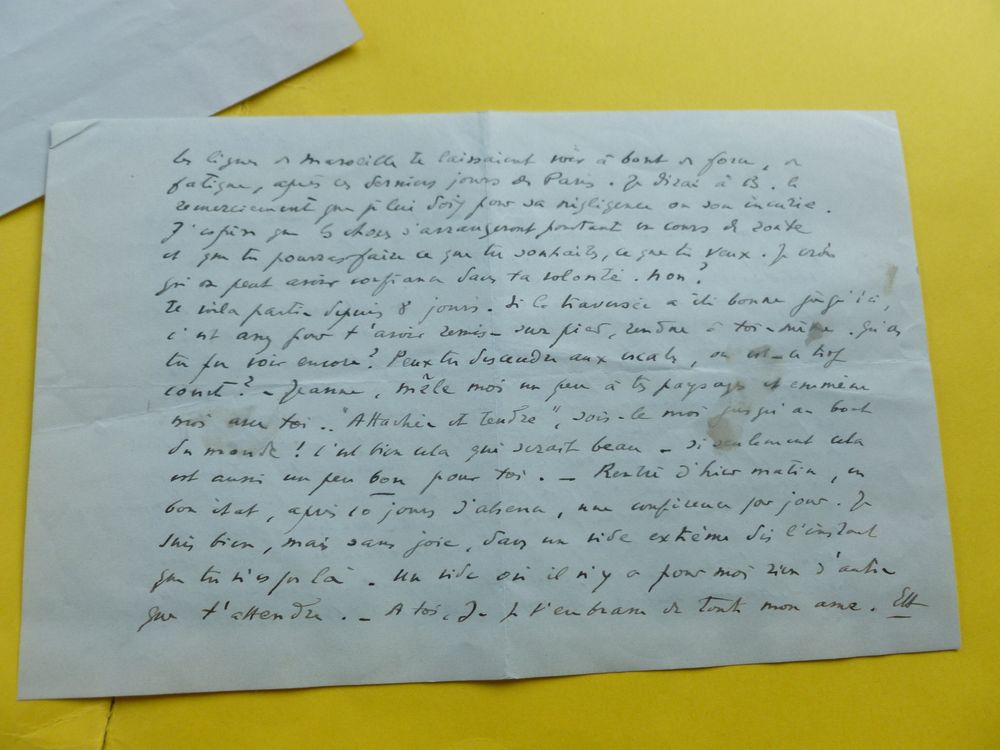 les lignes de Marseille te laissaient voir à bout de force, de
fatigue, après ces derniers jours de Paris. Je dirai à B. le
remerciement que je lui dois pour sa négligence ou son incurie.
J'espère que les choses s'arrangeront pourtant en cours de route
et que tu pourras faire ce que tu souhaites, ce que tu veux. Je crois
qu'on peut avoir confiance dans ta volonté. Non?
Te voilà partie depuis 8 jours. Si la traversée a été bonne jusqu'ici,
c'est assez pour t'avoir remise sur pied, rendue à toi-même. Qu'as
tu pu voir encore? Peux tu descendre aux escales, ou est-ce trop
court? - Jeanne, mêle moi un peu à tes paysages et emmène
moi avec toi.. "Attachée et tendre", sois-le moi jusqu'au bout
du monde! C'est bien cela qui serait beau - si seulement cela
est aussi un peu bon pour toi. - Rentré d'hier matin, en
bon état, après 10 jours d'absence, une conférence par jour. Je
suis bien, mais sans joie, dans un vide extrême dès l'instant
que tu n'es pas là. Un vide où il n'y a pour moi rien d'autre
que t'attendre. - A toi, Je t'embrasse de toute mon âme.